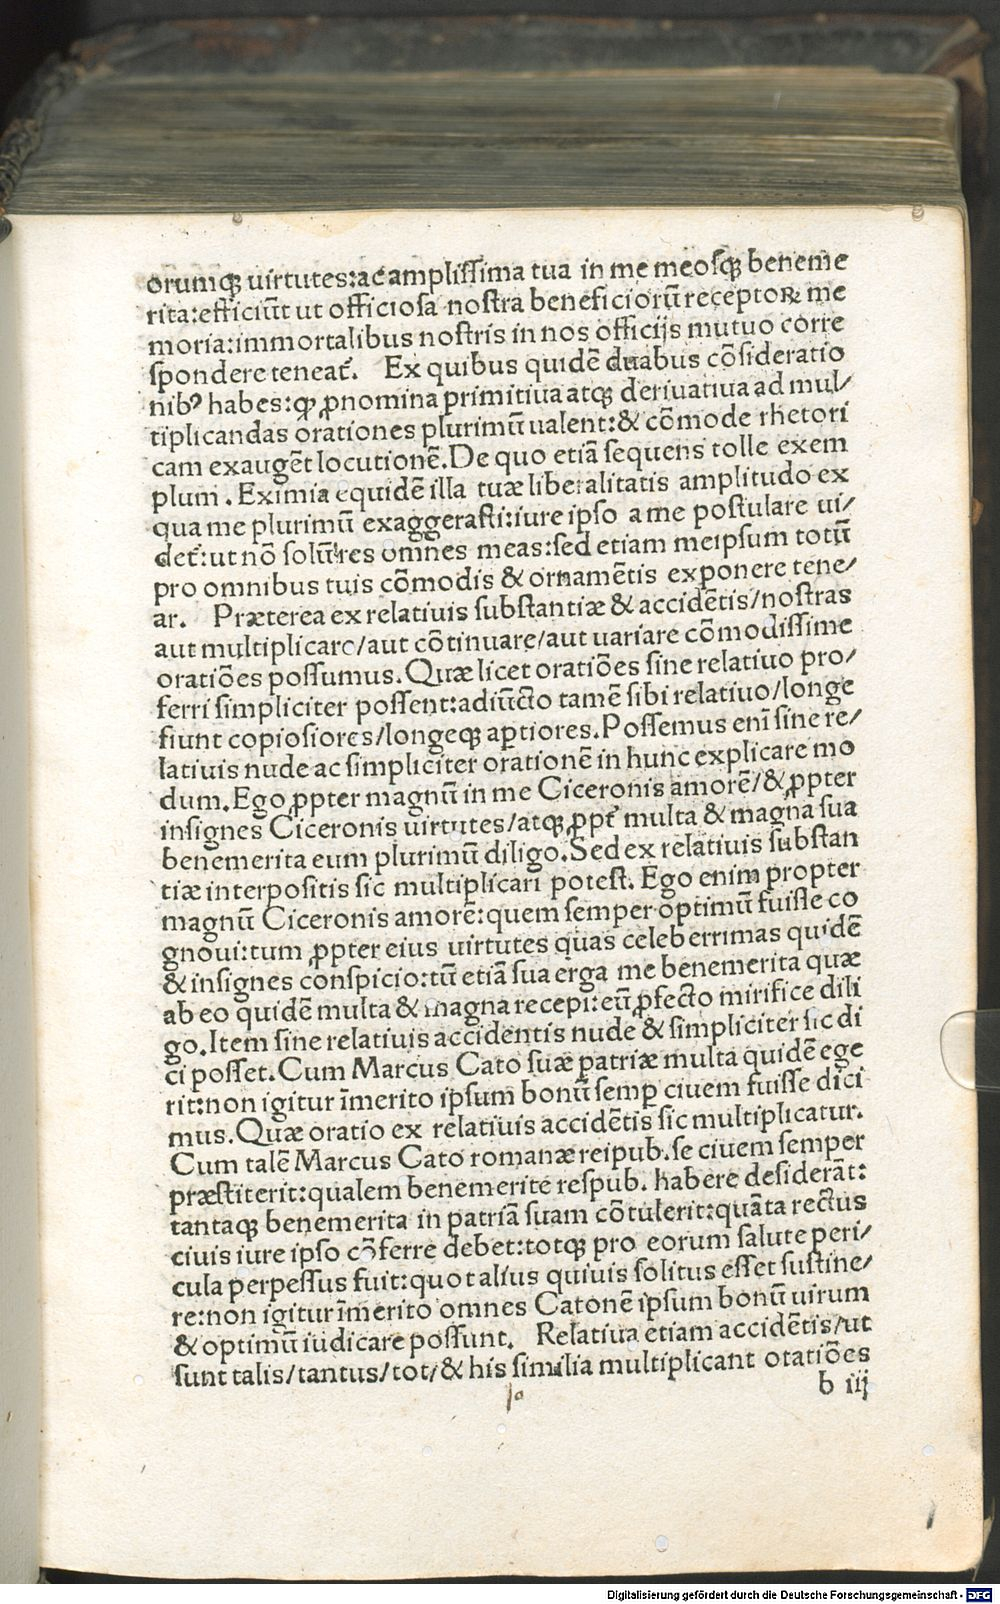 orumq̃ uirtutes:ac ampliſſima tua in me meoſq̃ beneme
rita:efficiũt ut officioſa noſtra beneficiorũ receptoꝝ me
moria:immortalibus noſtris in nos officijs mutuo corre
ſpondere teneat᷑. Ex quibus quidẽ duabus cõſideratio
nibꝰ habes:ꝙ ꝓnomina primitiua atq̃ deriuatiua ad mul/
tiplicandas orationes plurimũ ualent:& cõmode rhetori
cam exaugẽt locutionẽ.De quo etiã ſequens tolle exem
plum . Eximia equidẽ illa tuæ liberalitatis amplitudo ex
qua me plurimũ exaggeraſti:iure ipſo a me poſtulare ui/
det᷑:ut nõ ſolũ res omnes meas:ſed etiam meipſum totũ
pro omnibus tuis cõmodis & ornamẽtis exponere tene/
ar. Præterea ex relatiuis ſubſtantiæ & accidẽtis/noſtras
aut multiplicare/aut cõtinuare/aut uariare cõmodiſſime
oratiões poſſumus.Quæ licet oratiões ſine relatiuo pro/
ferri ſimpliciter poſſent:adiũcto tamẽ ſibi relatiuo/longe
fiunt copioſiores/longeq̃ aptiores.Poſſemus enĩ ſine re/
latiuis nude ac ſimpliciter orationẽ in hunc explicare mo
dum.Ego ꝓpter magnũ in me Ciceronis amorẽ/& ꝓpter
inſignes Ciceronis uirtutes/atq̃ ꝓpt᷑ multa & magna ſua
benemerita eum plurimũ diligo.Sed ex relatiuis ſubſtan
tiæ interpoſitis ſic multiplicari poteſt. Ego enim propter
magnũ Ciceronis amorẽ:quem ſemper optimũ fuiſſe co
gnoui:tum ꝓpter eius uirtutes quas celeberrimas quidẽ
& inſignes conſpicio:tũ etiã ſua erga me benemerita quæ
ab eo quidẽ multa & magna recepi:eũ ꝓfecto mirifice dili
go.Item ſine relatiuis accidentis nude & ſimpliciter ſic di
ci poſſet.Cum Marcus Cato ſuæ patriæ multa quidẽ ege
rit:non igitur ĩmerito ipſum bonũ ſemꝑ ciuem fuiſſe dici
mus.Quæ oratio ex relatiuis accidẽtis ſic multiplicatur.
Cum talẽ Marcus Cato romanæ reipub.ſe ciuem ſemper
præſtiterit:qualem benemerite reſpub. habere deſiderãt:
tantaq̃ benemerita in patriã ſuam cõtulerit:quãta rectus
ciuis iure ipſo cõferre debet:totq̃ pro eorum ſalute peri/
cula perpeſſus fuit:quot alius quiuis ſolitus eſſet ſuſtine/
re:non igitur ĩmerito omnes Catonẽ ipſum bonũ uirum
& optimũ iudicare poſſunt. Relatiua etiam accidẽtis/ut
ſunt talis/tantus/tot/& his ſimilia multiplicant otatiões
b iij
Digitalisierung gefördert durch die Deutsche Forschungsgemeinschaft - DFG